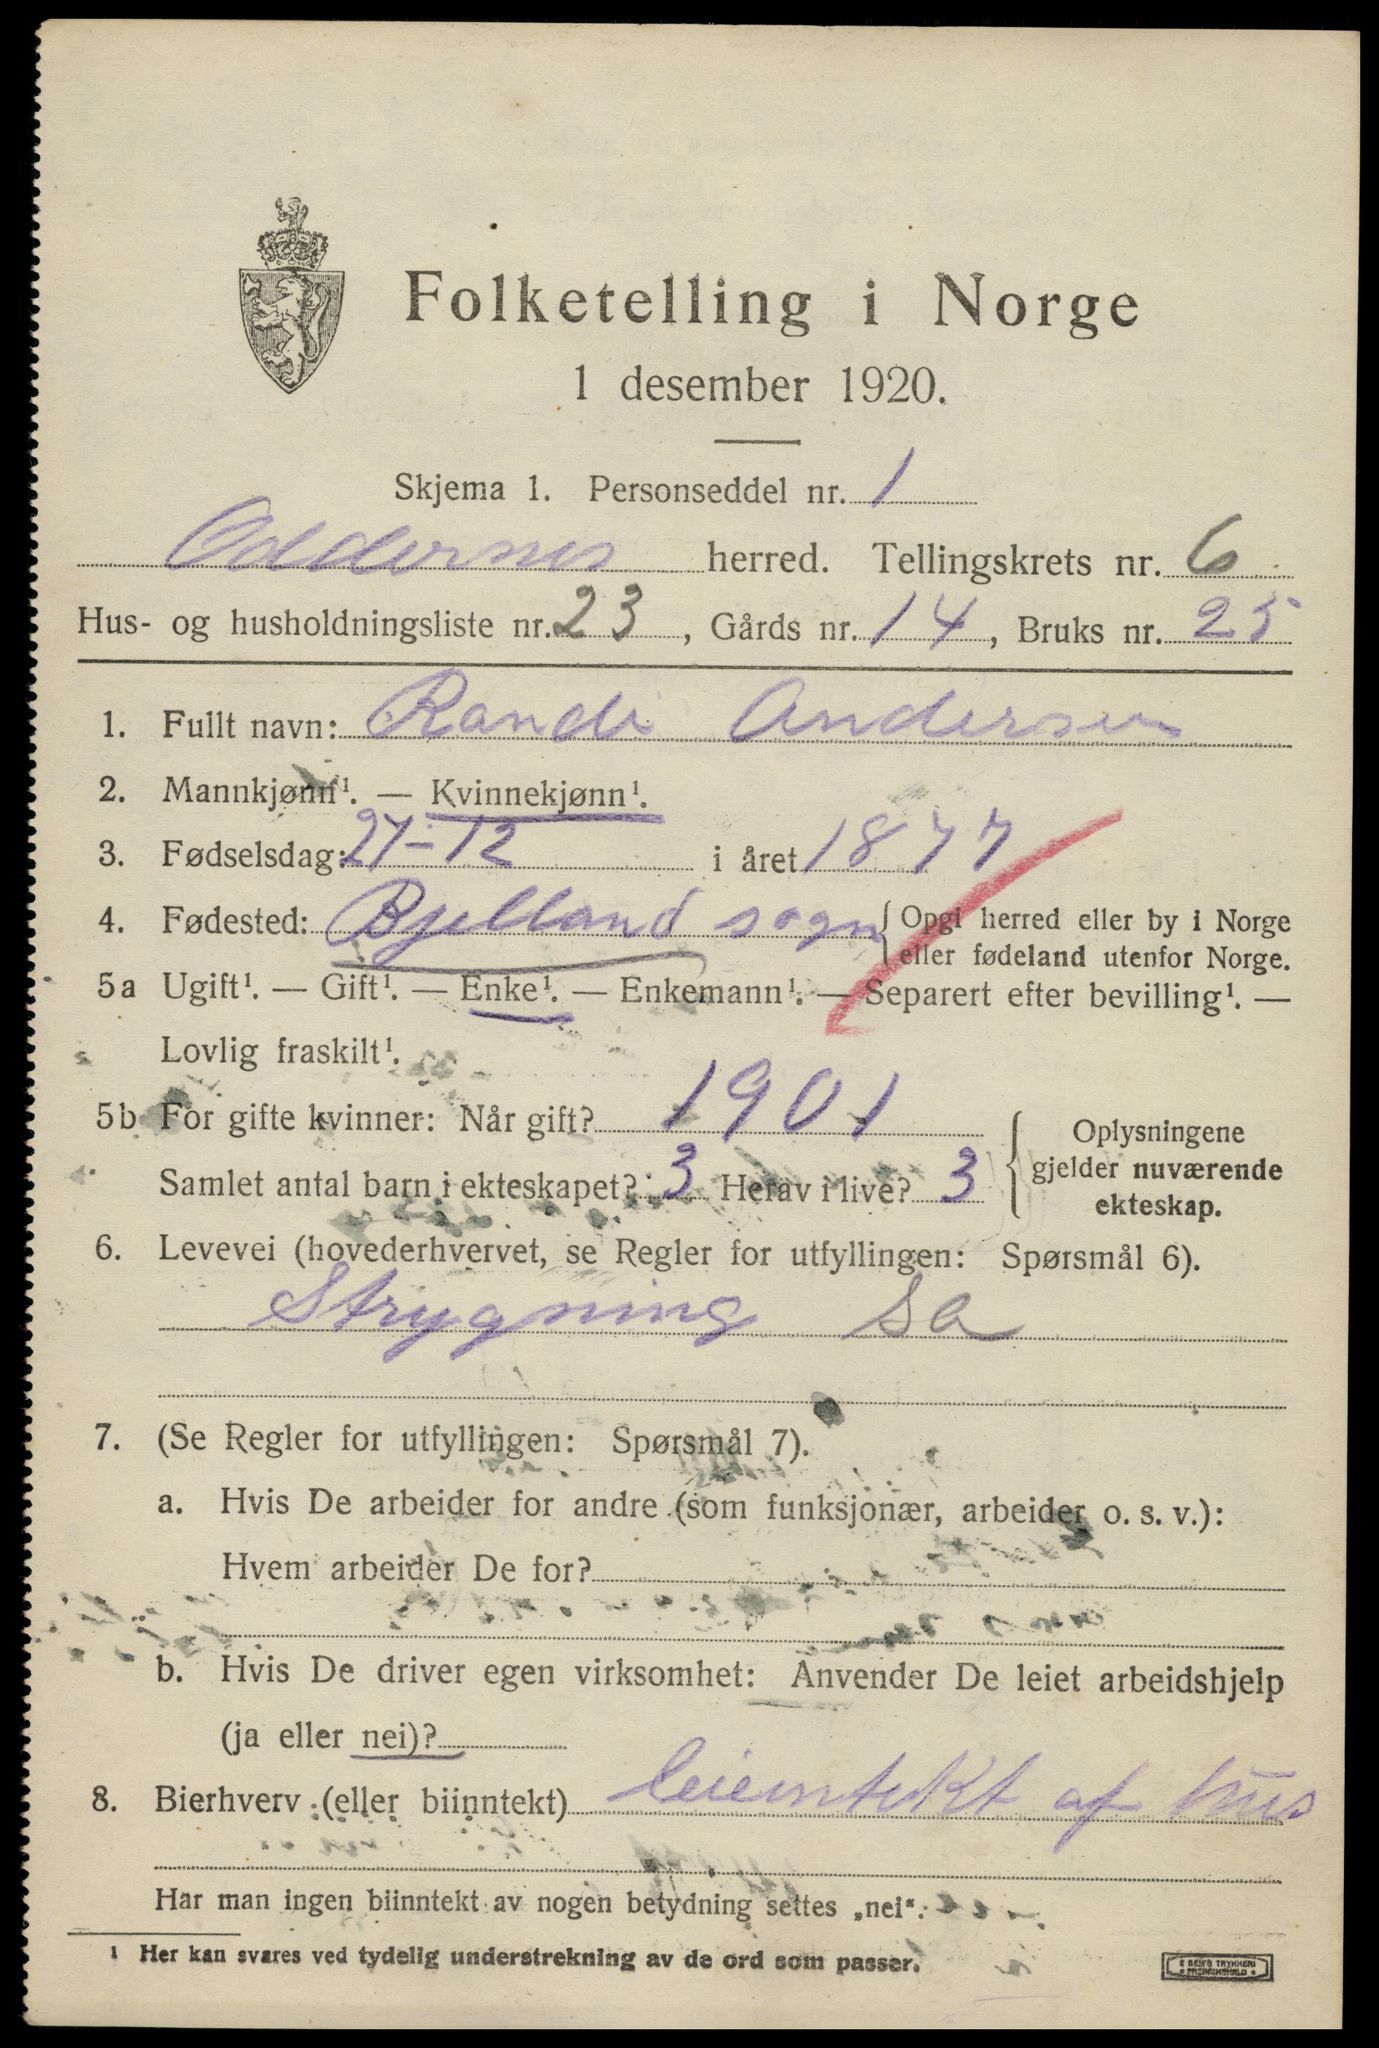 Folketelling i Norge
1 desember 1920.
Skjema 1. Personseddel nr. 1
Oddernes herred. Tellingskrets nr. 6
Hus- og husholdningsliste nr. 23, Gårds nr. 14, Bruks nr. 25
1. Fullt navn: Randi Andersen
2. Mannkjønn¹. — Kvinnekjønn¹.
3. Fødselsdag: 27-12 i året 1877
4. Fødested: Bjelland sogn { Opgi herred eller by i Norge
eller fødeland utenfor Norge.
5a Ugift¹. — Gift¹. — Enke¹. — Enkemann¹. — Separert efter bevilling¹. —
Lovlig fraskilt¹.
5b For gifte kvinner: Når gift? 1901
Samlet antal barn i ekteskapet? 3 Herav i live? 3
{ Oplysningene
gjelder nuværende
ekteskap.
6. Levevei (hovederhvervet, se Regler for utfyllingen: Spørsmål 6).
Strygning Sa
7. (Se Regler for utfyllingen: Spørsmål 7).
a. Hvis De arbeider for andre (som funksjonær, arbeider o. s. v.):
Hvem arbeider De for?
b. Hvis De driver egen virksomhet: Anvender De leiet arbeidshjelp
(ja eller nei)?
8. Bierhverv (eller biinntekt) leieintekt af hus
Har man ingen biinntekt av nogen betydning settes „nei“.
¹ Her kan svares ved tydelig understrekning av de ord som passer.
E SEM'S TRYKKERI
FREDRIKSHALD